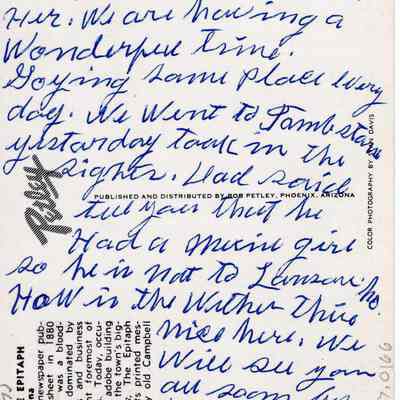 Her. We are having a
Wonderful time.
Goying same place every
day. We Went to Tombstone
yestarday took in the
sights. Dad said
tell you that he
Had a
girl
so he is not to
How is the
Nice here. We
Will see you
all soon
Petley
PUBLISHED AND DISTRIBUTED BY BOB PETLEY, PHOENIX, ARIZONA
COLOR PHOTOGRAPHY BY JOHN DAVIS
E EPITAPH
newspaper pub-
sheet in 1880
was a blood-
dominated by
and business
t foremost of
Today, occu-
adobe building
the town's big-
The Epitaph
ts printed mes-
y old Campbell